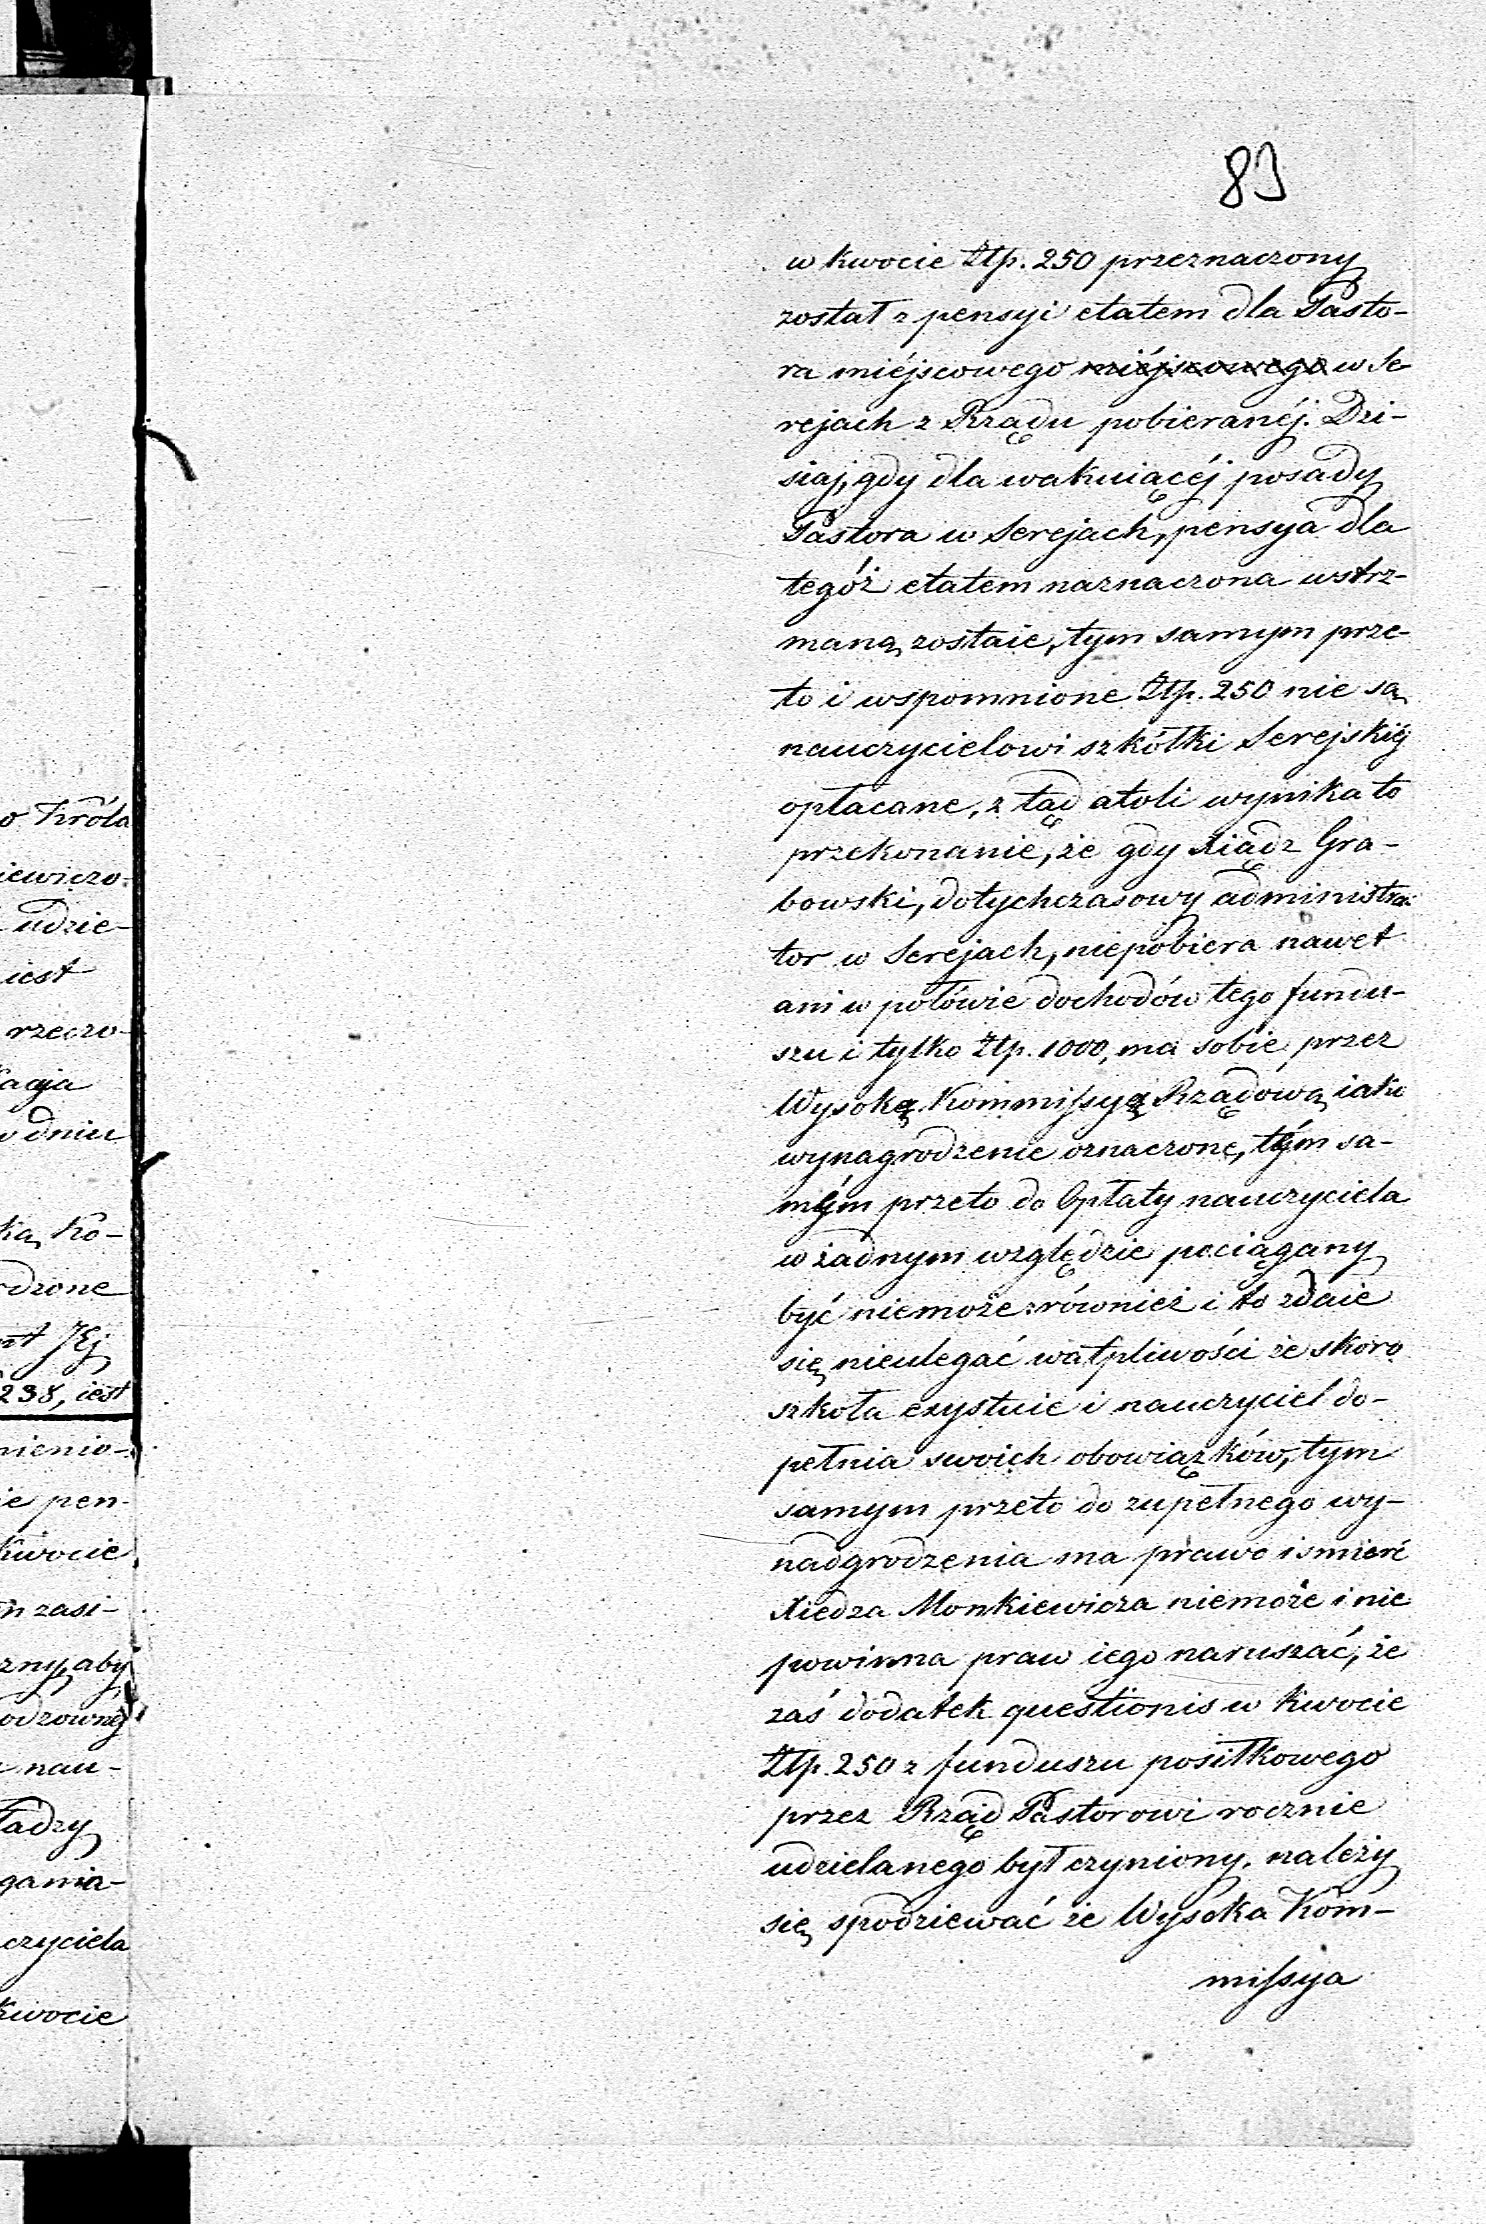 83
w kwocie Złp. 250 przeznaczony
został z pensyi etatem dla Pasto-
ra miéjscowego miéjscowego w Se-
rejach z Rządu pobieranéj. Dzi-
siaj, gdy dla wakuiącéj posady
Pastora w Serejach, pensya dla
tegóż etatem naznaczona wstrz-
maną zostaie, tym samym prze-
to i wspomnione Złp. 250 nie są
nauczycielowi szkółki Serejskiéj
opłacane, z tąd atoli wynika to
przekonanie, że gdy Xiądz Gra-
bowski, dotychczasowy administra-
tor w Serejach, niepobiera nawet
ani w połówie dochodów tego fundu-
szu i tylko Złp. 1000, ma sobie przez
Wysoką Kommissyą Rządową iako
wynagrodzenie oznaczone, tým sa-
mým przeto do Opłaty nauczyciela
w żadnym względzie pociągany
być niemoże: również i to zdaie
się nieulegać watpliwości że skoro
szkoła exystuie i nauczyciel do-
pełnia swoich obowiązków, tym
samym przeto do zupełnego wy-
nadgrodzenia ma prawo i smierć
Xiedza Monkiewicza niemoże i nie
powinna praw iego naruszać, że
zaś dodatek questionis w kwocie
Złp. 250 z funduszu posiłkowego
przez Rząd Pastorowi rocznie
udzielanego był czyniony, należy
się spodziewać że Wysoka Kom-
missya
o Króla
iewiczo-
udzie-
iest
rzeczo-
w dniu
ką Ko-
dzone
238, iest
mienio-
ie pen-
kwocie
zasi-
zny, aby
nau-
ładzy
gania-
czyciela
kwocie